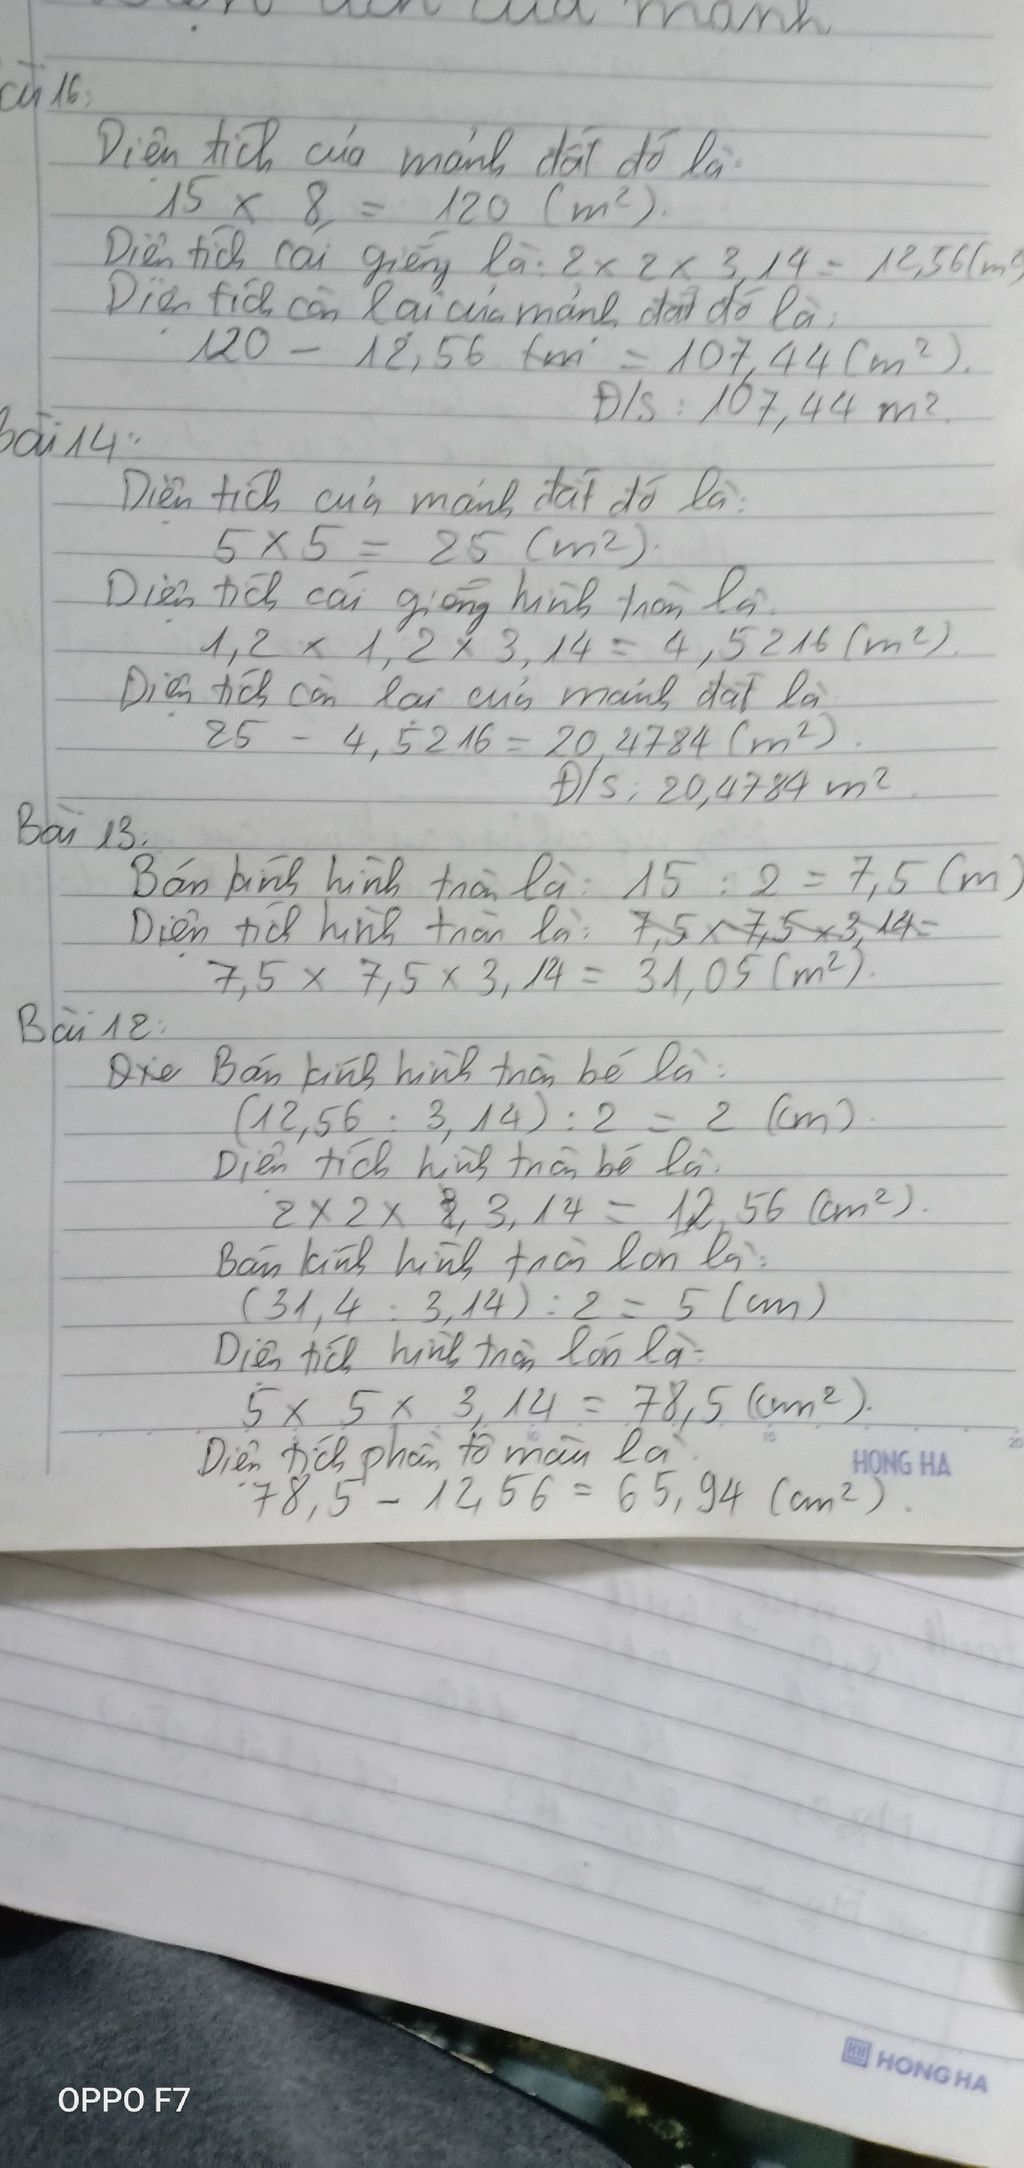 của mảnh
16:
Diện tích của mảnh đất đó là:
15 x 8 = 120 (m²).
Diện tích cái giếng là: 2 x 2 x 3,14 = 12,56 (m²)
Diện tích còn lại của mảnh đất đó là:
120 - 12,56 = 107,44 (m²).
Đ/s: 107,44 m².
Bài 14:
Diện tích của mảnh đất đó là:
5 x 5 = 25 (m²).
Diện tích cái giếng hình tròn là:
1,2 x 1,2 x 3,14 = 4,5216 (m²).
Diện tích còn lại của mảnh đất là
25 - 4,5216 = 20,4784 (m²).
Đ/s: 20,4784 m².
Bài 13:
Bán kính hình tròn là: 15 : 2 = 7,5 (m)
Diện tích hình tròn là: 7,5 x 7,5 x 3,14 =
7,5 x 7,5 x 3,14 = 31,05 (m²).
Bài 12:
Bán kính hình tròn bé là:
(12,56 : 3,14) : 2 = 2 (cm).
Diện tích hình tròn bé là.
2 x 2 x 3,14 = 12,56 (cm²).
Bán kính hình tròn lớn là:
(31,4 : 3,14) : 2 = 5 (cm)
Diện tích hình tròn lớn là:
5 x 5 x 3,14 = 78,5 (cm²).
Diện tích phần tô màu là
HONG HA
78,5 - 12,56 = 65,94 (cm²).
HONG HA
OPPO F7